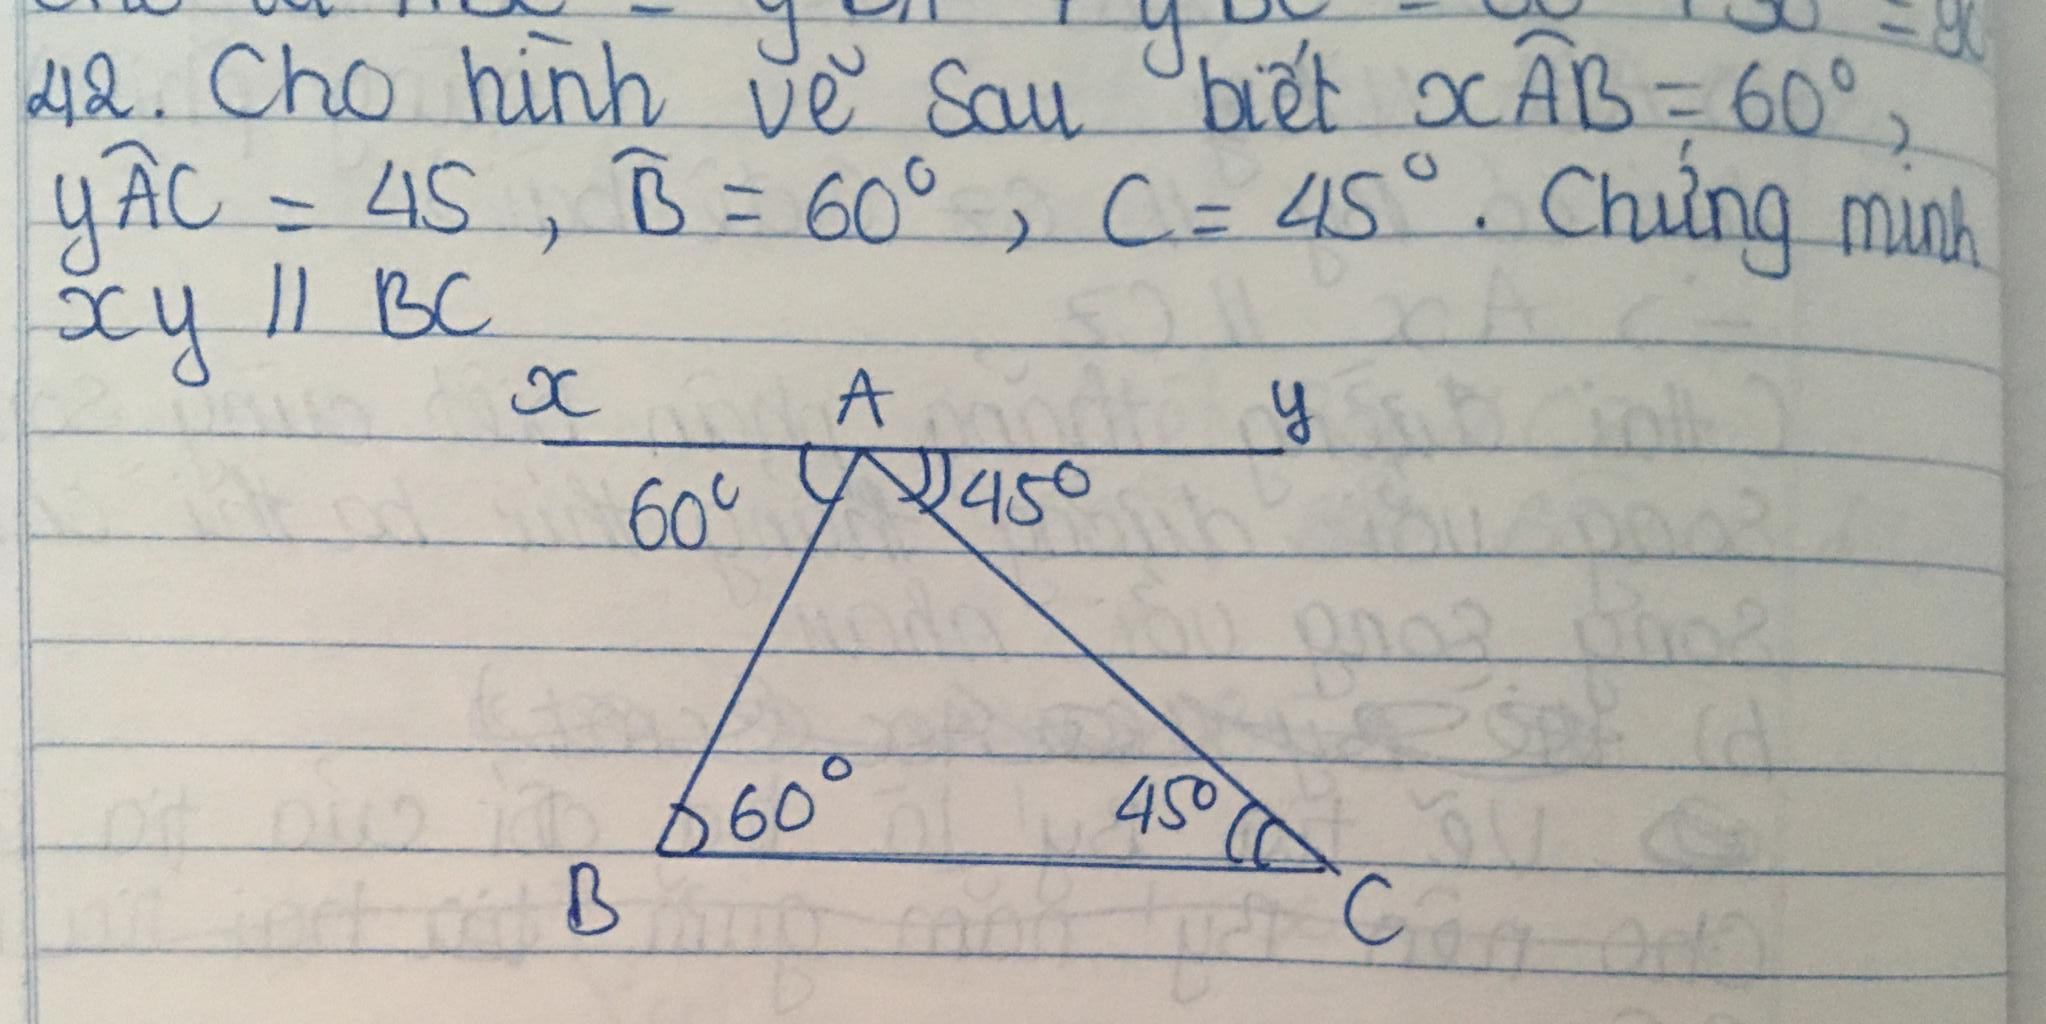 42. Cho hình vẽ sau biết xÂB = 60°,
yÂC = 45, B̂ = 60°, C = 45°. Chứng minh
xy // BC
x A y
60° 45°
60° 45°
B C